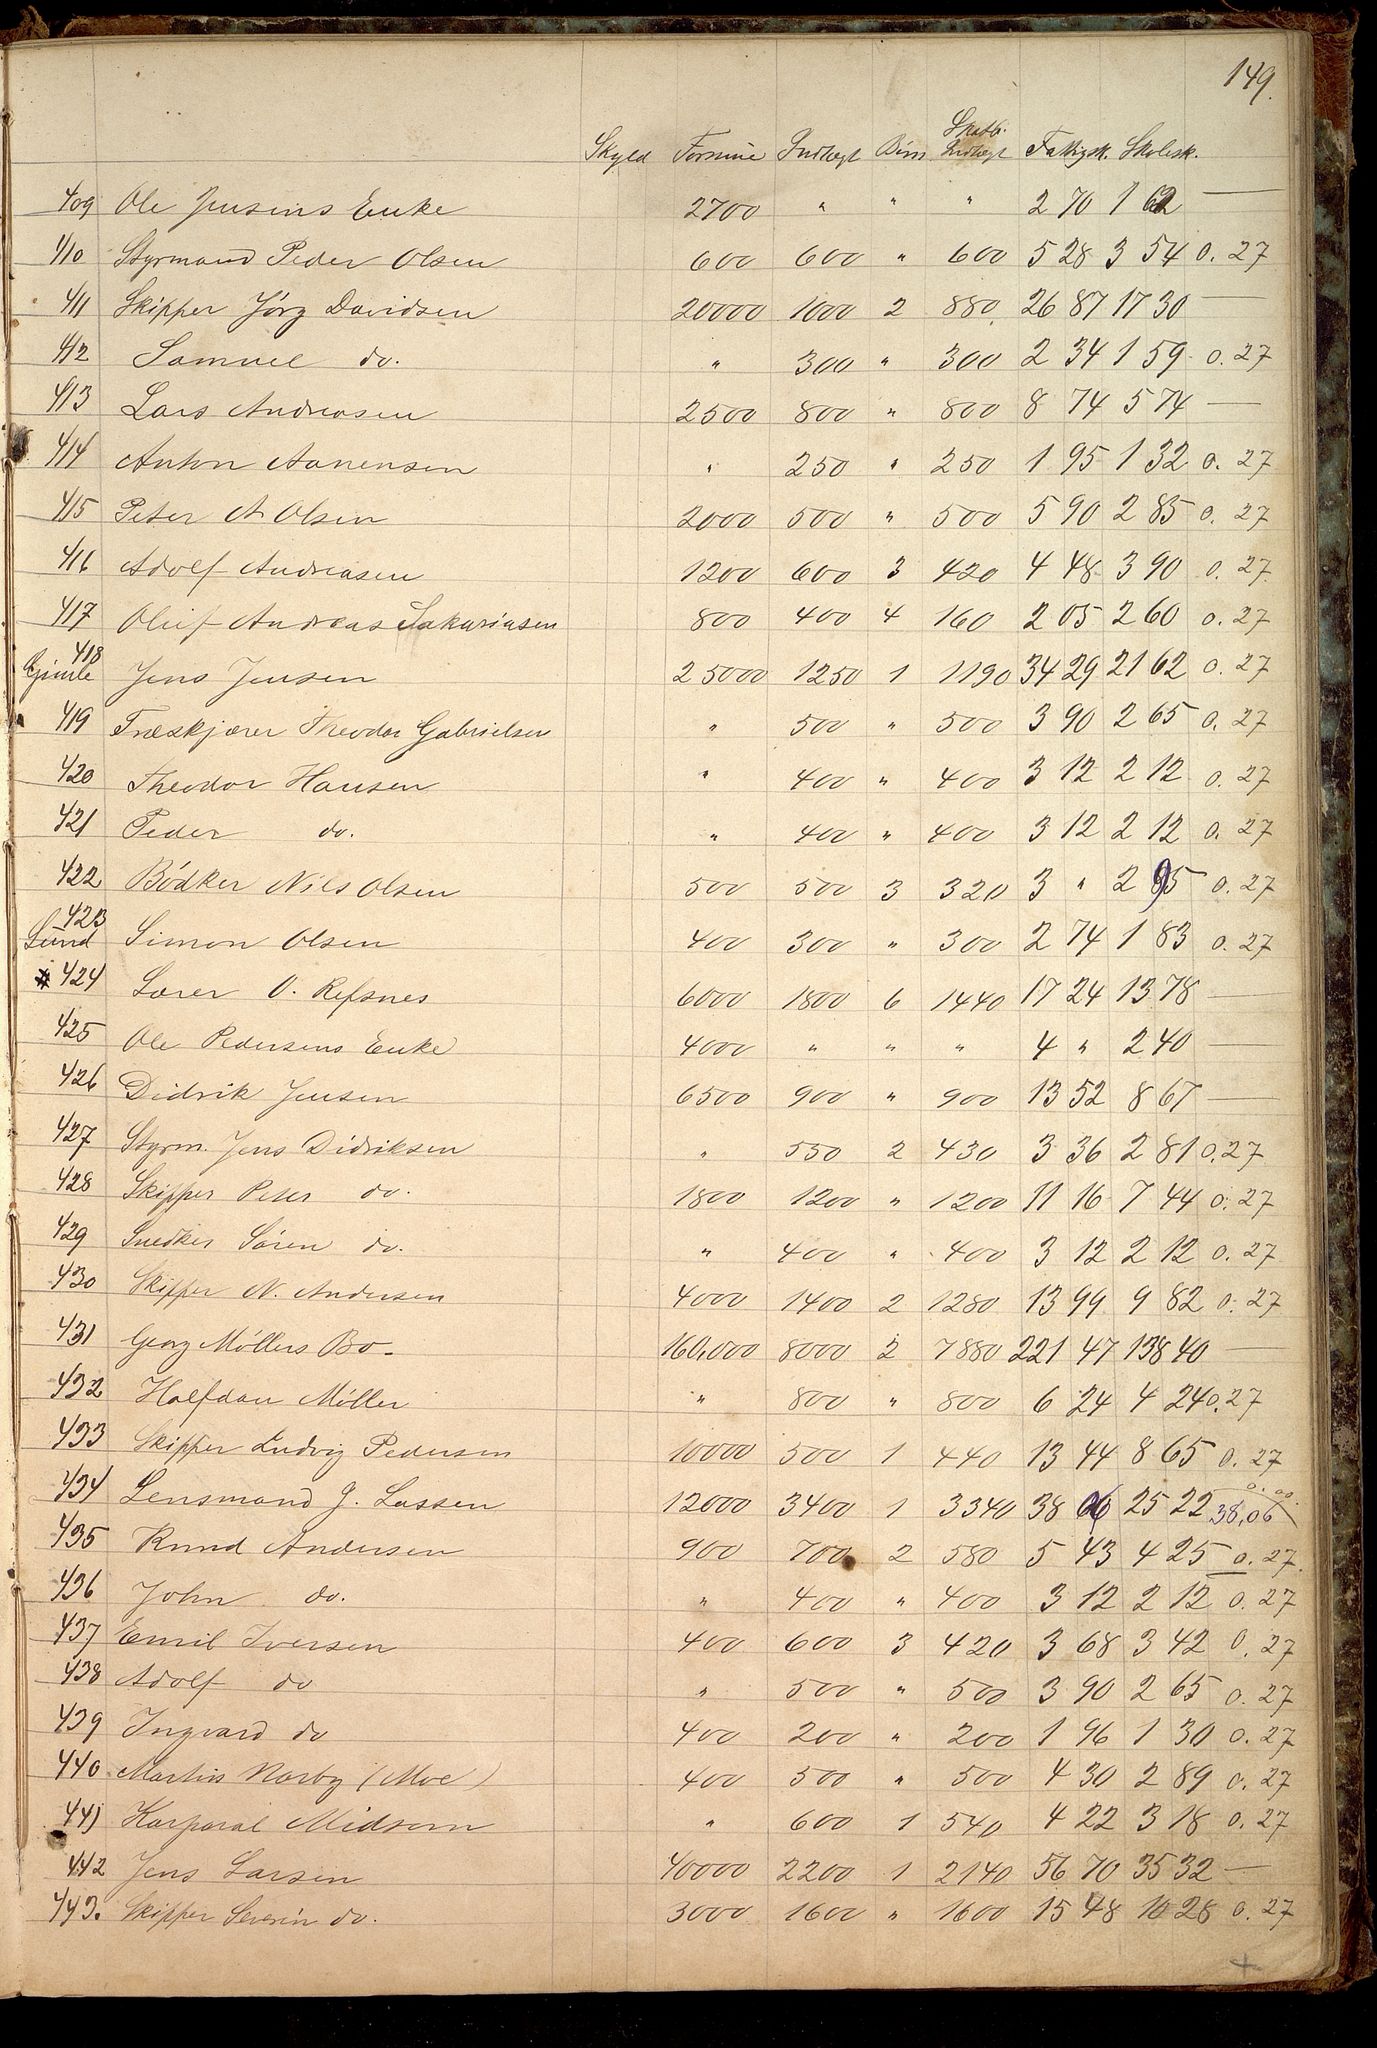 149.
Skyld Formue Indtægt Børn Skatb. Indtægt Fattigsk. Skolesk.
409 Ole Jensens Enke 2700 " " " 2 70 1 62 —
410 Styrmand Peder Olsen 600 600 " 600 5 28 3 54 0.27
411 Skipper Jørg Davidsen 20000 1000 2 880 26 87 17 30 —
412 Samuel do. " 300 " 300 2 34 1 59 0.27
413 Lars Andreasen 2500 800 " 800 8 74 5 74 —
414 Anton Aanensen " 250 " 250 1 95 1 32 0.27
415 Peter A Olsen 2000 500 " 500 5 90 2 85 0.27
416 Adolf Andreasen 1200 600 3 420 4 48 3 90 0.27
417 Oluf Andreas Sakariasen 800 400 4 160 2 05 2 60 0.27
418 Gimle Jens Jensen 25000 1250 1 1190 34 29 21 62 0.27
419 Træskjærer Theodor Gabrielsen " 500 " 500 3 90 2 65 0.27
420 Theodor Hansen " 400 " 400 3 12 2 12 0.27
421 Peder do. " 400 " 400 3 12 2 12 0.27
422 Bødker Nils Olsen 500 500 3 320 3 " 2 95 0.27
423 Lund Simon Olsen 400 300 " 300 2 74 1 83 0.27
424 Lærer O. Refsnes 6000 1800 6 1440 17 24 13 78 —
425 Ole Pedersens Enke 4000 " " " 4 " 2 40 —
426 Didrik Jensen 6500 900 " 900 13 52 8 67 —
427 Styrm. Jens Didriksen " 550 2 430 3 36 2 81 0.27
428 Skipper Peter do. 1800 1200 " 1200 11 16 7 44 0.27
429 Snedker Søren do. " 400 " 400 3 12 2 12 0.27
430 Skipper N. Andersen 4000 1400 2 1280 13 99 9 82 0.27
431 Georg Møllers Bo. 160,000 8000 2 7880 221 47 138 40 —
432 Halfdan Møller " 800 " 800 6 24 4 24 0.27
433 Skipper Ludvig Pedersen 10000 500 1 440 13 44 8 65 0.27
434 Lensmand J. Lassen 12000 3400 1 3340 38 06 25 22 38,06 0.00.
435 Knud Andersen 900 700 2 580 5 43 4 25 0.27.
436 John do. " 400 " 400 3 12 2 12 0.27
437 Emil Iversen 400 600 3 420 3 68 3 42 0.27
438 Adolf do " 500 " 500 3 90 2 65 0.27
439 Ingvard do 400 200 " 200 1 96 1 30 0.27
440 Martin Narby (Moe) 400 500 " 500 4 30 2 89 0.27
441 Korporal Midsem " 600 1 540 4 22 3 18 0.27
442 Jens Larsen 40000 2200 1 2140 56 70 35 32 —
443. Skipper Severin do. 3000 1600 " 1600 15 48 10 28 0.27
+